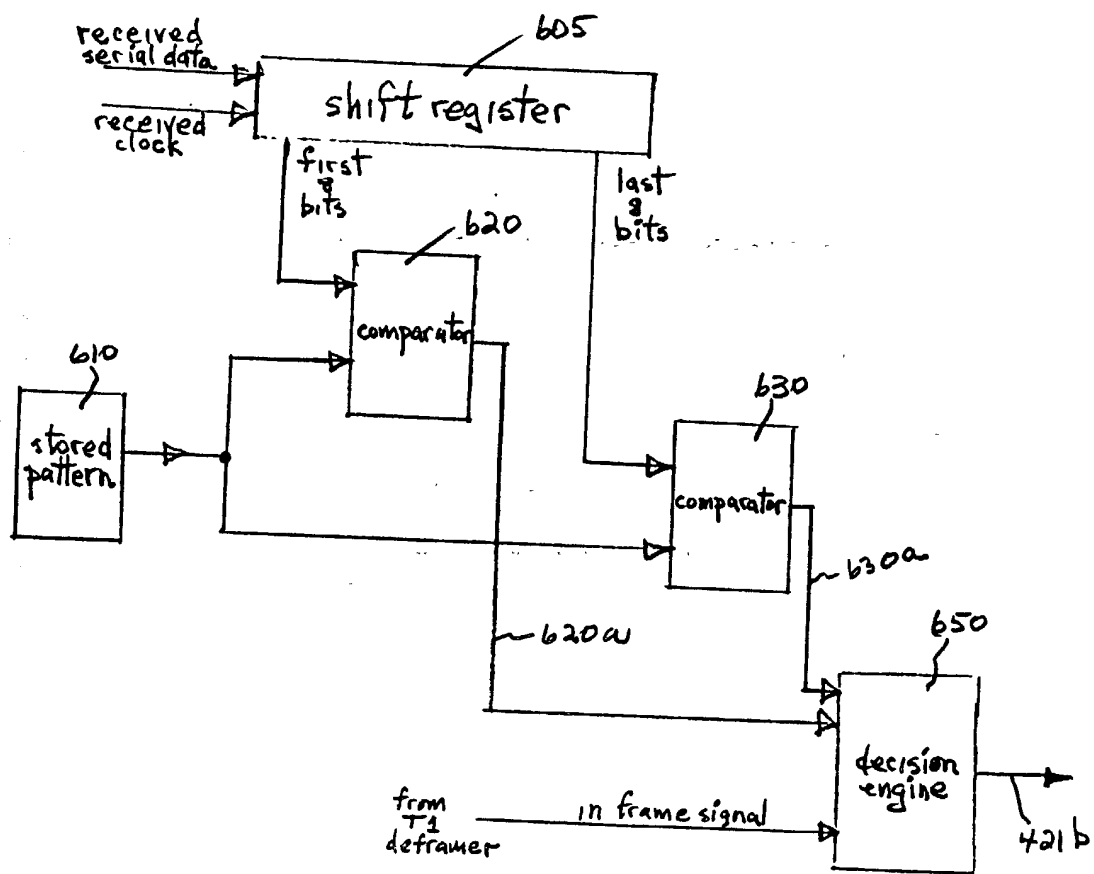 605
received
serial data
shift register
received
clock
first
8
bits
last
8
bits
620
comparator
610
stored
pattern
630
comparator
630a
620a
650
decision
engine
from
T1
deframer
in frame signal
421b